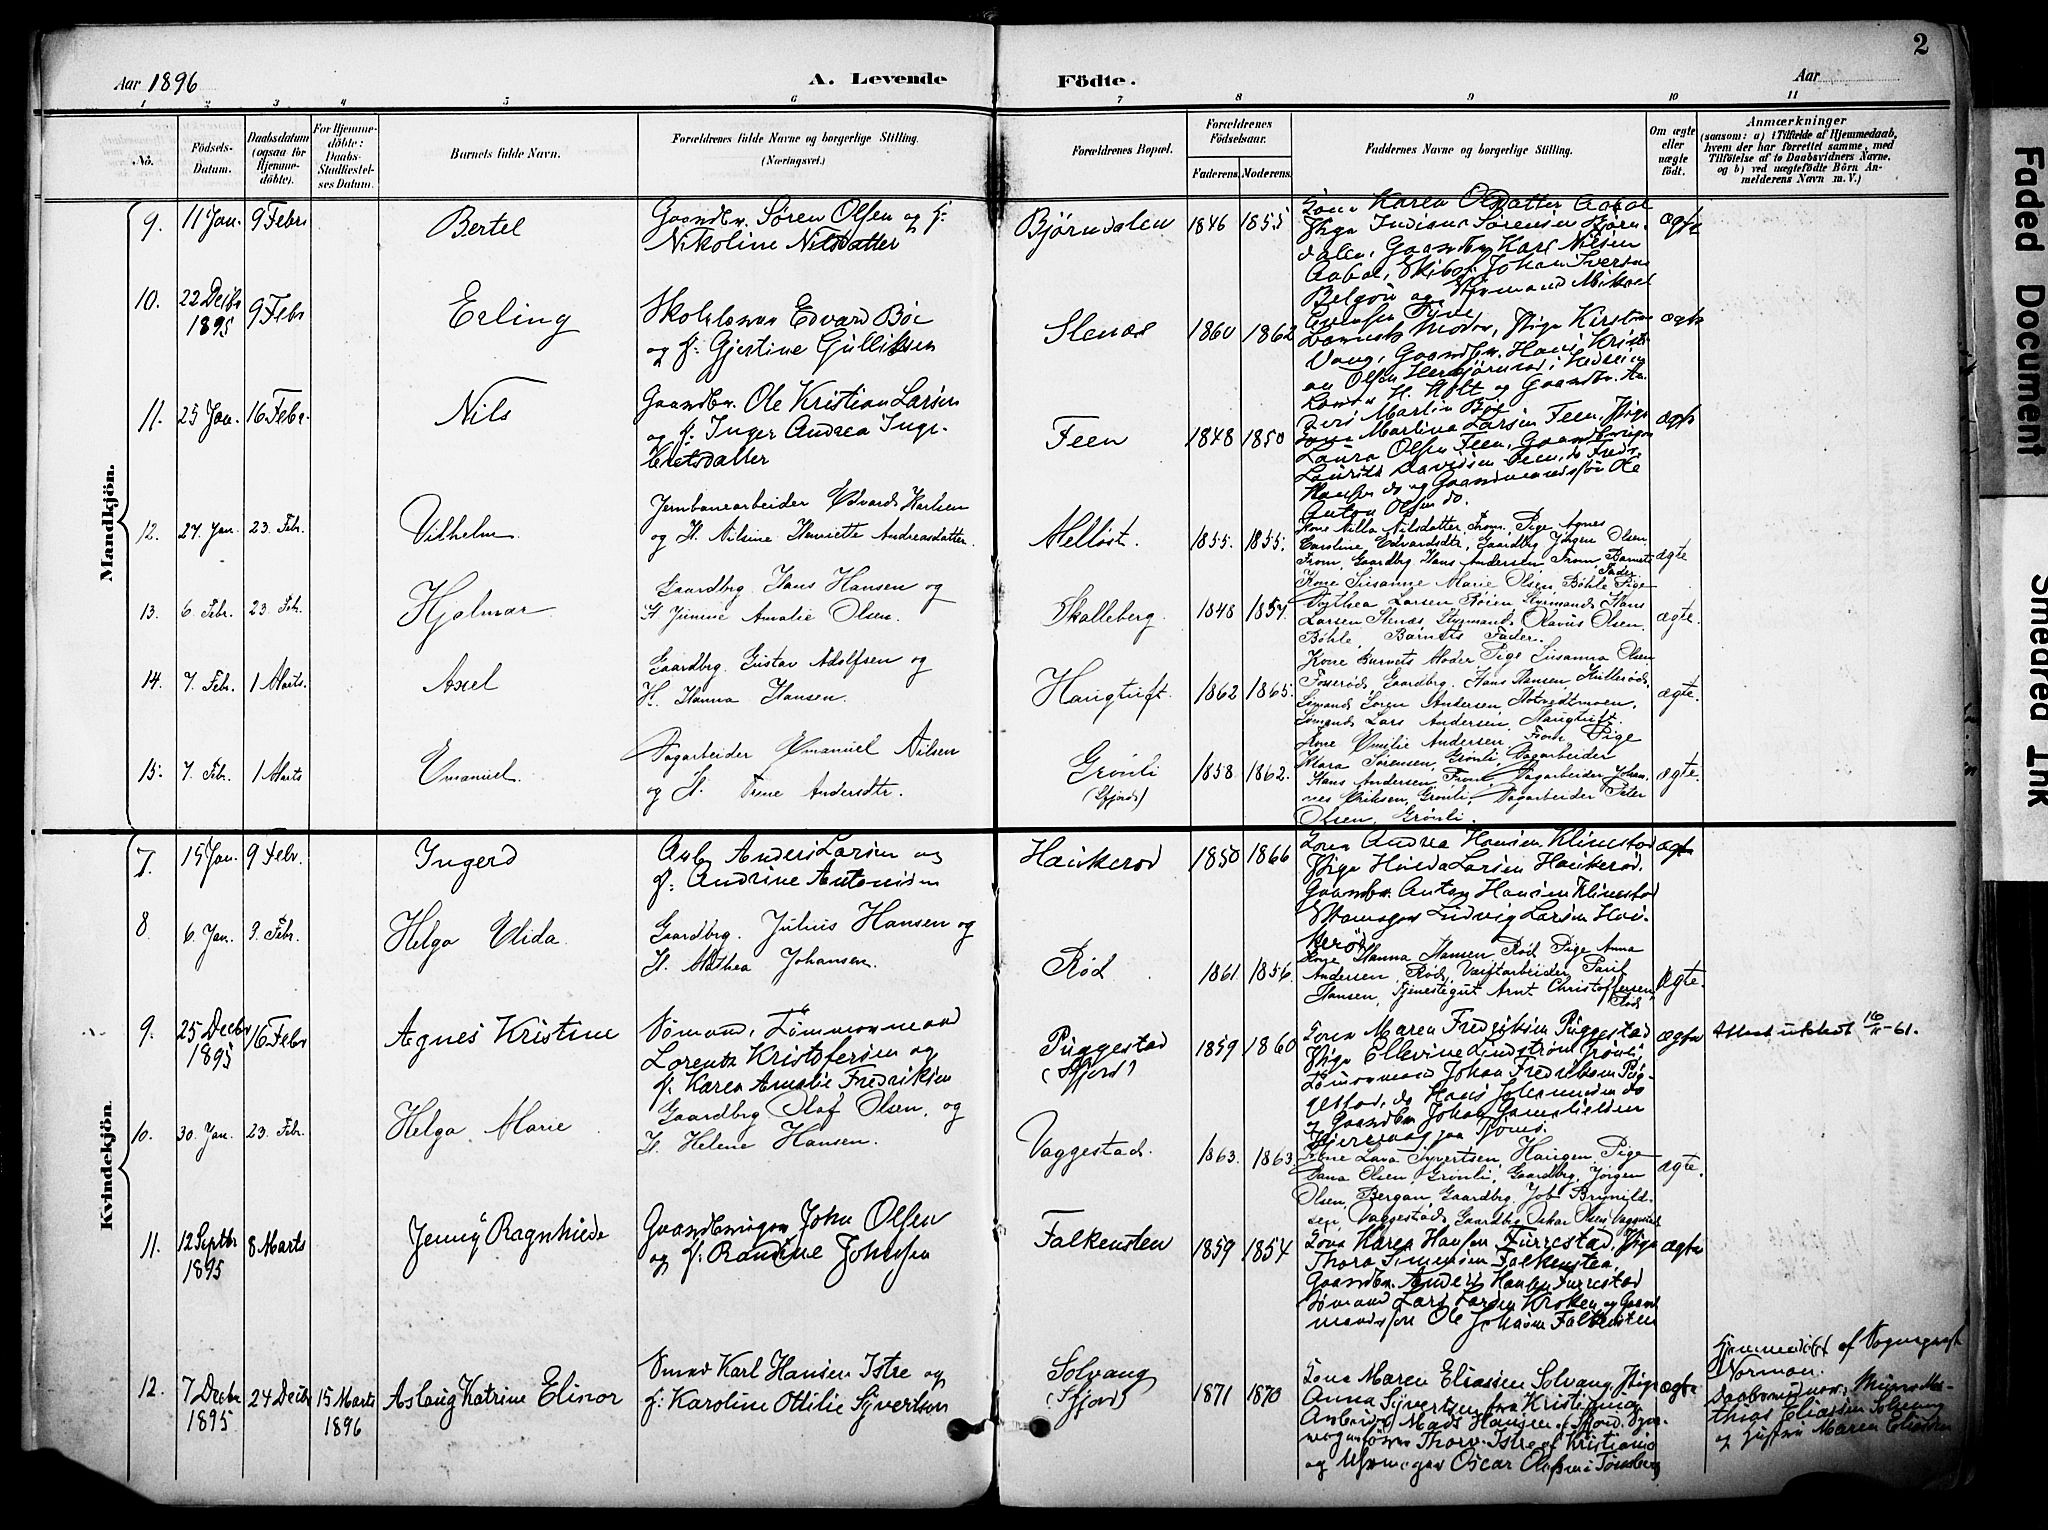 2
Aar 1896
A. Levende
Födte.
Aar
1 2 3 4 5 6 7 8 9 10 11
No.
Födsels-
Datum.
Daabsdatum
(ogsaa for
Hjemme-
döbte).
For Hjemme-
döbte:
Daabs-
Stadfæstel-
ses Datum.
Barnets fulde Navn.
Forældrenes fulde Navne og borgerlige Stilling.
(Næringsvei.)
Forældrenes Bopæl.
Forældrenes
Födselsaar.
Faderens.
Moderens.
Faddernes Navne og borgerlige Stilling.
Om ægte
eller
uægte
födt.
Anmærkninger
(saasom: a) i Tilfælde af Hjemmedaab,
hvem der har forrettet samme, med
Tilföielse af to Daabsvidners Navne.
og b) ved uægtefödte Börn An-
melderens Navn m. V.)
Mandkjön.
9. 11 Jan. 9 Febr.
Bertel
Gaardbr. Søren Olsen og h:
Nikoline Nilsdatter
Bjørndalen 1846 1855
Kone Karen Olsdatter Aabøl
Pige Indiana Sørensen Bjørn-
dalen, Gaardbr. Karl Nilsen
Aabøl, Skibsf. Johan Iversen
ægte
10. 22 Decbr 1895 9 Febr
Erling
Edvard Bøe
og h: Gjertine Gulliksen
Stenæs 1860 1862
Barnets Moder, Pige
Vang, Gaardbr. Hans Kristi-
an Olsen
ægte
11. 25 Jan. 16 Febr.
Nils
Gaardbr. Ole Kristian Larsen
og h: Inger Andrea Inge-
bretsdatter
Feen 1848 1850
Kone Martina Larsen Feen, Pige
Laura Olsen Feen,
Anton Olsen do.
ægte
12. 27. Jan. 23. Febr.
Vilhelm
Jernbanearbeider Edvard Karlsen
og H. Nilsine Henriette Andreasdatter.
Melløst. 1855. 1855.
Kone Nilla Nilsdatter, From. Pige Agnes
Caroline Edvardsdtr, Gaardbg Jørgen Olsen
From, Gaardbg Hans Andersen From, Barnets
Fader
ægte
13. 6. Febr. 23. Febr.
Hjalmar
Gaardbrg. Hans Hansen og
H. Amalie Olsen.
Skalleberg. 1848 1854.
Kone Susanne Marie Olsen, Bøhle, Pige
Larsen Røien, Styrmand, Hans
Larsen Stenæs, Styrmand, Olavus Olsen,
Bøhle, Barnets Fader.
ægte.
14. 7. Febr. 1 Marts.
Axel
Gaardbrg. Gustav Adolfsen og
H. Hanna Hansen.
Haugtuft. 1862 1865.
Kone Barnets Moder, Pige Susanna Olsen
Gaardbrg. Hans Hansen
Sømand Søren Andersen
Sømand, Lars Andersen, Haugtuft.
ægte.
15. 7. Febr. 1 Marts
Emanuel.
Dagarbeider Emanuel Nilsen
og H. Trine Andersdtr.
Grønli
(Sfjord) 1858 1862.
Kone Emilie Andersen, From Pige
Mara Sørensen, Grønli, Dagarbeider
Hans Andersen, From, Dagarbeider Johan-
nes Eriksen, Grønli, Dagarbeider Peter
Olsen, Grønli.
ægte.
Kvindekjön.
7. 15 Jan. 9 Febr.
Ingerd
Arb. Anders Larsen og
h: Andrine Antonisen
Haukerød 1850 1866
Kone Andrea Hansen Klinestad
Pige Hulda Larsen Haukerød,
Gaardbr. Anton Hansen Klinestad
Ludvig Larsen Hau-
kerød
ægte
8. 6. Jan. 9. Febr.
Helga Elida.
Gaardbrg. Julius Hansen og
H. Mathea Johansen.
Rød 1861 1856.
Kone Hanna Hansen, Rød, Pige Anna
Andersen, Rød, Værftarbeider Paul
Hansen, Tjenestegut Arnt Christoffersen,
Rød
Ægte.
9. 25 Decbr 1895 16 Febr
Agnes Kristine
Sømand, Tømmermand
Lorents Kristofersen og
h: Karen Amalie Fredriksen
Puggestad
(Sfjord) 1859 1860
Kone Maren Fredriksen Puggestad
Pige Ellevine Lindstrøm, Grønli,
Tømmermand Johan Fredriksen Pug-
gestad, do Hans Johannesen do
og Gaardbr. Johan
paa Tjømø.
ægte
Attest utstedt 16/11-61.
10. 30. Jan. 23. Febr.
Helga Marie
Gaardbrg Olaf Olsen, og
H. Helene Hansen.
Vaggestad. 1863. 1863
Kone Lava Syvertsen, Haugen, Pige
Dana Olsen, Grønli, Gaardbrg. Jørgen
Olsen, Bergan, Gaardbrg. Job Brynild-
sen, Vaggestad, Gaardbrg Oskar Olsen Vaggestad
ægte.
11. 12 Septbr 1895 8 Marts
Jenny Ragnhilde
John Olsen
og h: Randine Johnsen
Falkensten 1859 1854
Kone Karen Hansen Furrestad, Pige
Thora Simensen Falkensten,
Gaardbr. Anders Hansen Furrestad
Sømand Lars Larsen Kroken og Gaard-
mandssøn Ole Johnsen Falkensten
ægte
12. 7 Decbr 1895 24 Decbr 15 Marts 1896
Aslaug Katrine Elinor
Smed Karl Hansen Istre og
h: Karoline Ottilie Syvertsen
Solvang
(Sfjord) 1871 1870
Kone Maren Eliassen Solvang, Pige
Anna Syvertsen fra Kristiania,
Arbeider Mads Hansen, Sfjord,
Thorv. Istre af Kristiania
og Oscar Olsen i Tønsberg
ægte
Hjemmedøbt af Sogneprest
Norman.
Daabsvidner: Ma-
thias Eliassen Solvang
og Hustru Maren Eliassen
Faded Document
Smeared Ink